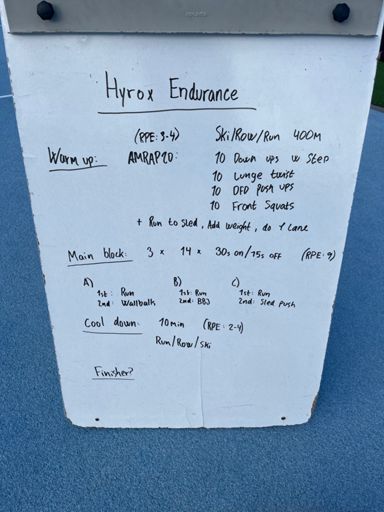 Hyrox Endurance
(RPE: 3-4) Ski/Row/Run 400M
Warm up: AMRAP 10: 10 Down ups w step
10 Lunge twist
10 DFD push ups
10 Front Squats
+ Run to sled, Add weight, do 1 Lane
Main block: 3 x 14 x 30s on/15s off (RPE: 9)
A) B) C)
1st: Run 1st: Run 1st: Run
2nd: Wallballs 2nd: BBJ 2nd: Sled push
Cool down: 10 min (RPE: 2-4)
Run/Row/Ski
Finisher?